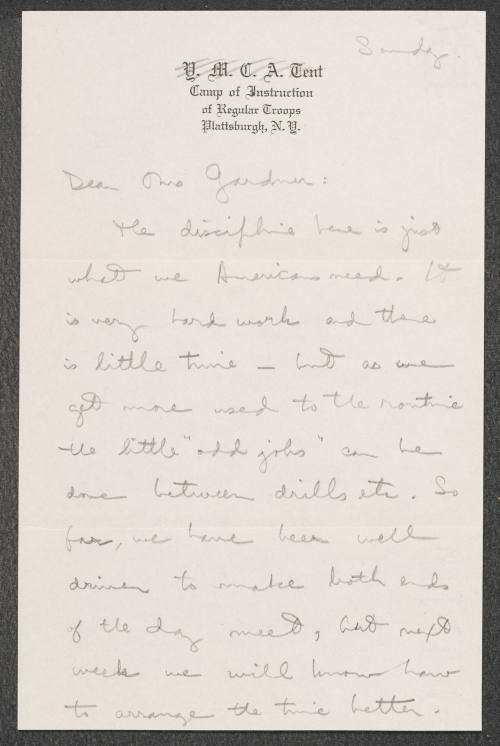 Sunday.
Y. M. C. A. Tent
Camp of Instruction
of Regular Troops
Plattsburgh, N. Y.
Dear Mrs Gardner:
The discipline here is just
what we Americans need. It
is very hard work and there
is little time — but as we
get more used to the routine
the little "odd jobs" can be
done between drills etc. So
far, we have been well
driven to make both ends
of the day meet, but next
week we will know how
to arrange the time better.